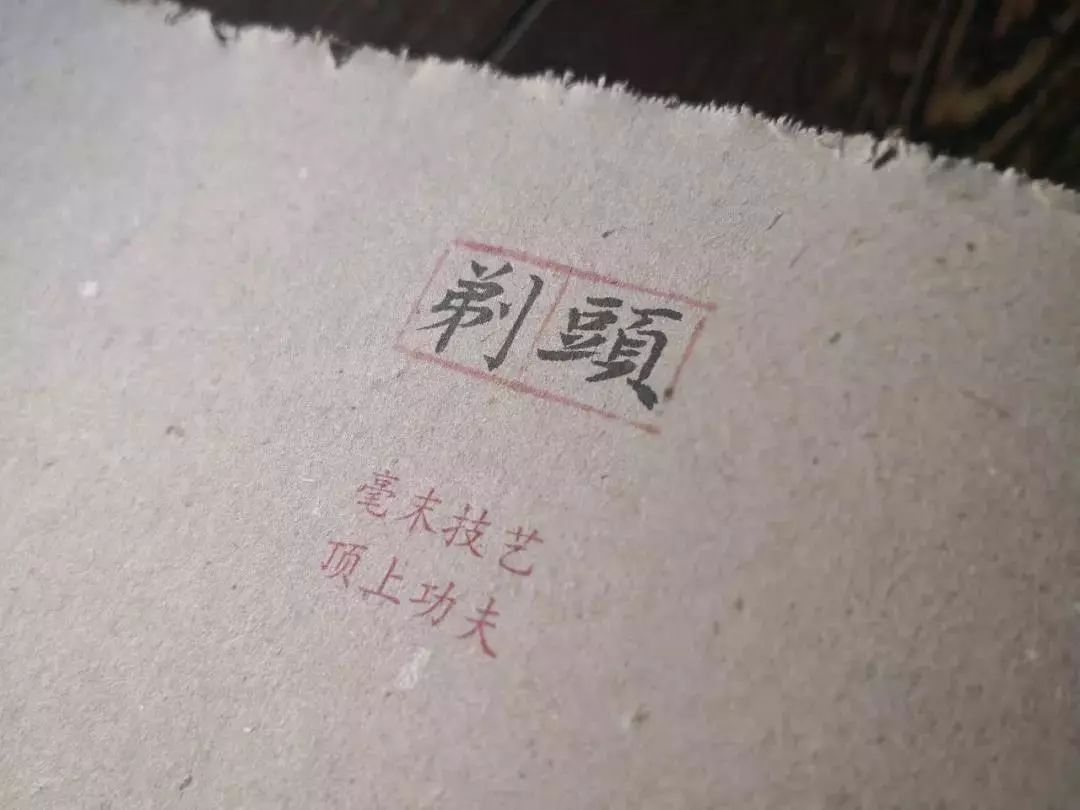 剃頭
毫末技艺
顶上功夫